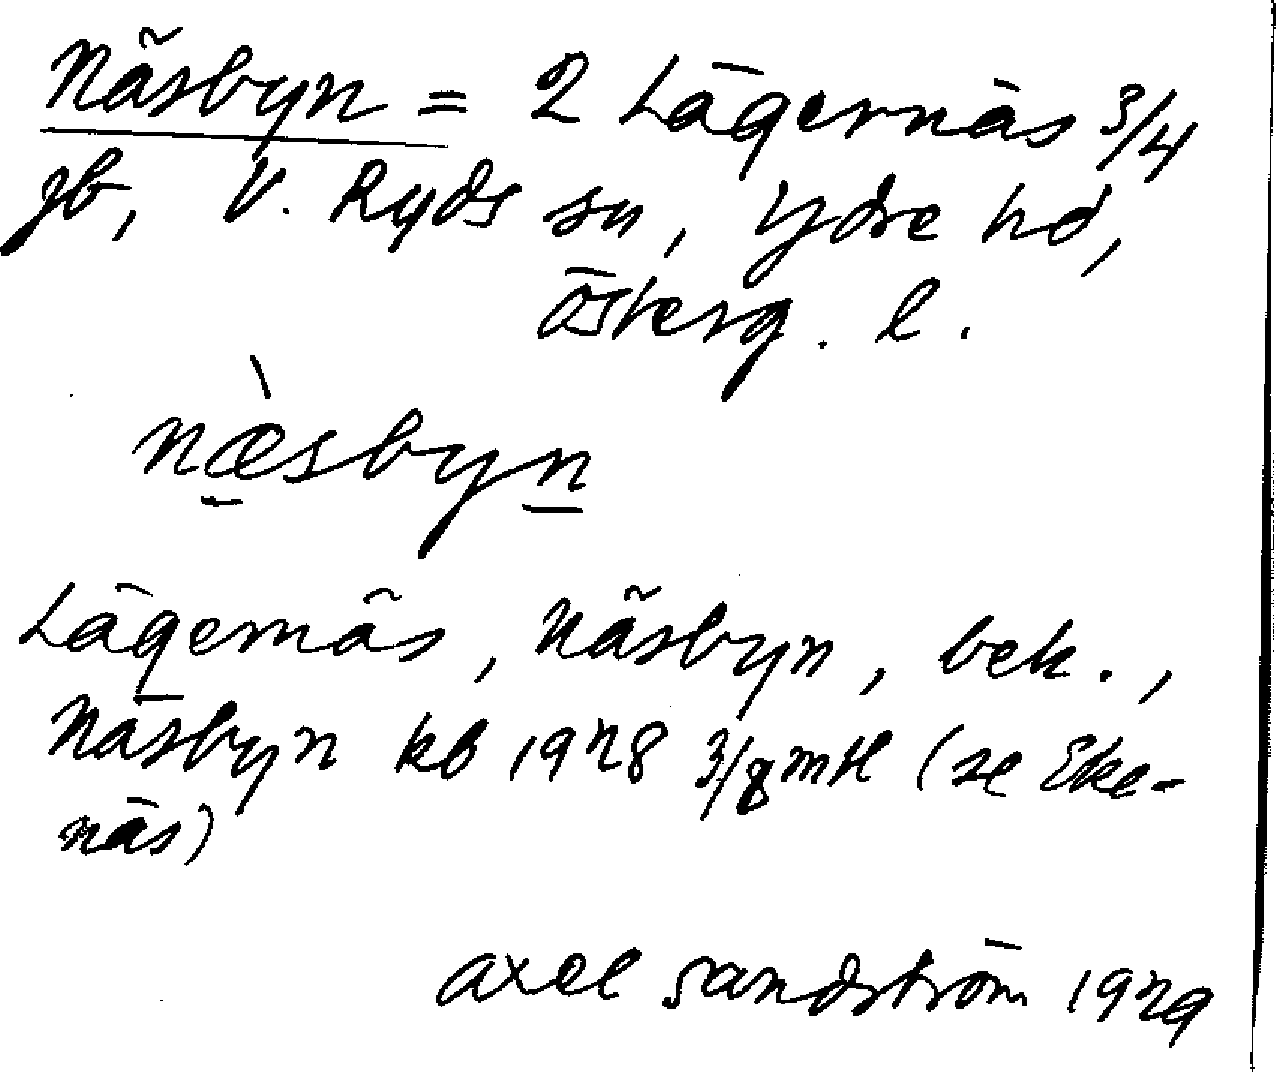 Näsbyn = 2 Lägernäs 3/4
jb, V. Ryds sn, Ydre hd,
Österg. l.
næ̀sbyn
Lägernäs, Näsbyn, bek.,
Näsbyn kb 1928 3/8 mtl (se Eke-
näs)
Axel Sandström 1929